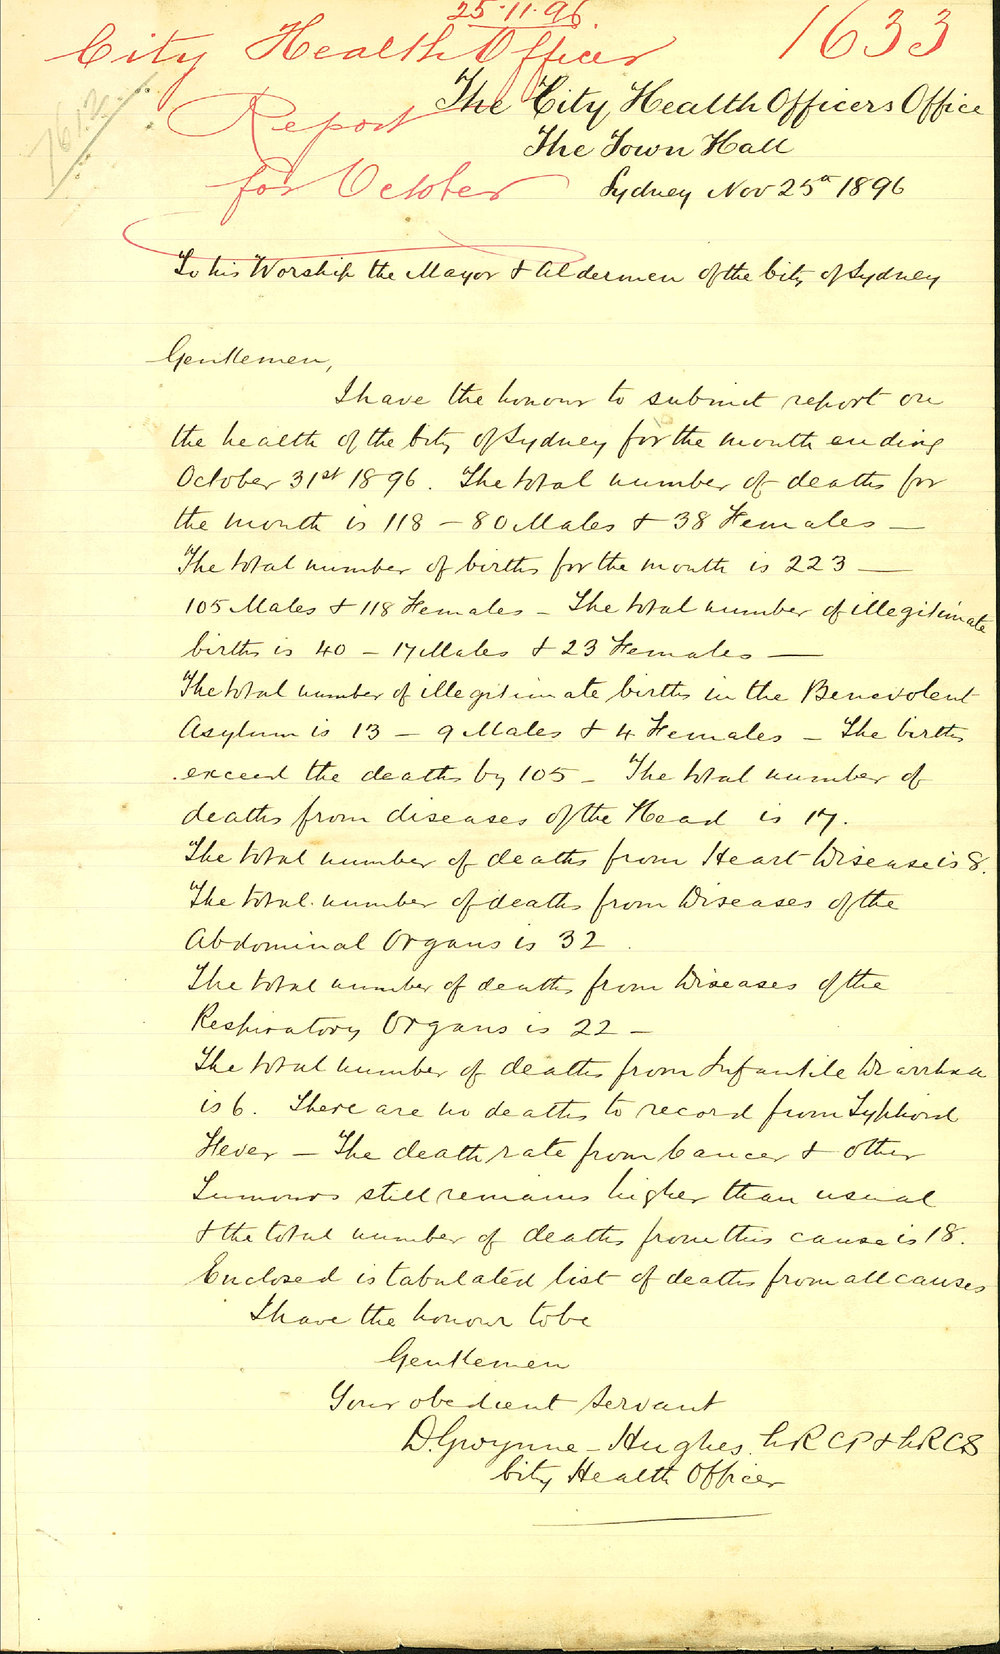 25.11.96.
City Health Officer
1633
Report
for October
The City Health Officers Office
The Town Hall
Sydney Nov 25th 1896
To his Worship the Mayor & Aldermen of the City of Sydney
Gentlemen,
I have the honour to submit report on
the health of the City of Sydney for the month ending
October 31st 1896. The total number of deaths for
the month is 118 – 80 Males & 38 Females –
The total number of births for the month is 223 –
105 Males & 118 Females – The total number of illegitimate
births is 40 – 17 Males & 23 Females –
The total number of illegitimate births in the Benevolent
Asylum is 13 – 9 Males & 4 Females – The births
exceed the deaths by 105 – The total number of
deaths from diseases of the Head is 17.
The total number of deaths from Heart Disease is 8.
The total number of deaths from Diseases of the
Abdominal Organs is 32.
The total number of deaths from Diseases of the
Respiratory Organs is 22 –
The total number of deaths from Infantile Diarrhoea
is 6. There are no deaths to record from Typhoid
Fever – The death rate from Cancer & other
Tumours still remains higher than usual
& the total number of deaths from this cause is 18.
Enclosed is tabulated list of deaths from all causes
I have the honour to be
Gentlemen
Your obedient servant
D. Gwynne-Hughes. LRCP & LRCS
City Health Officer